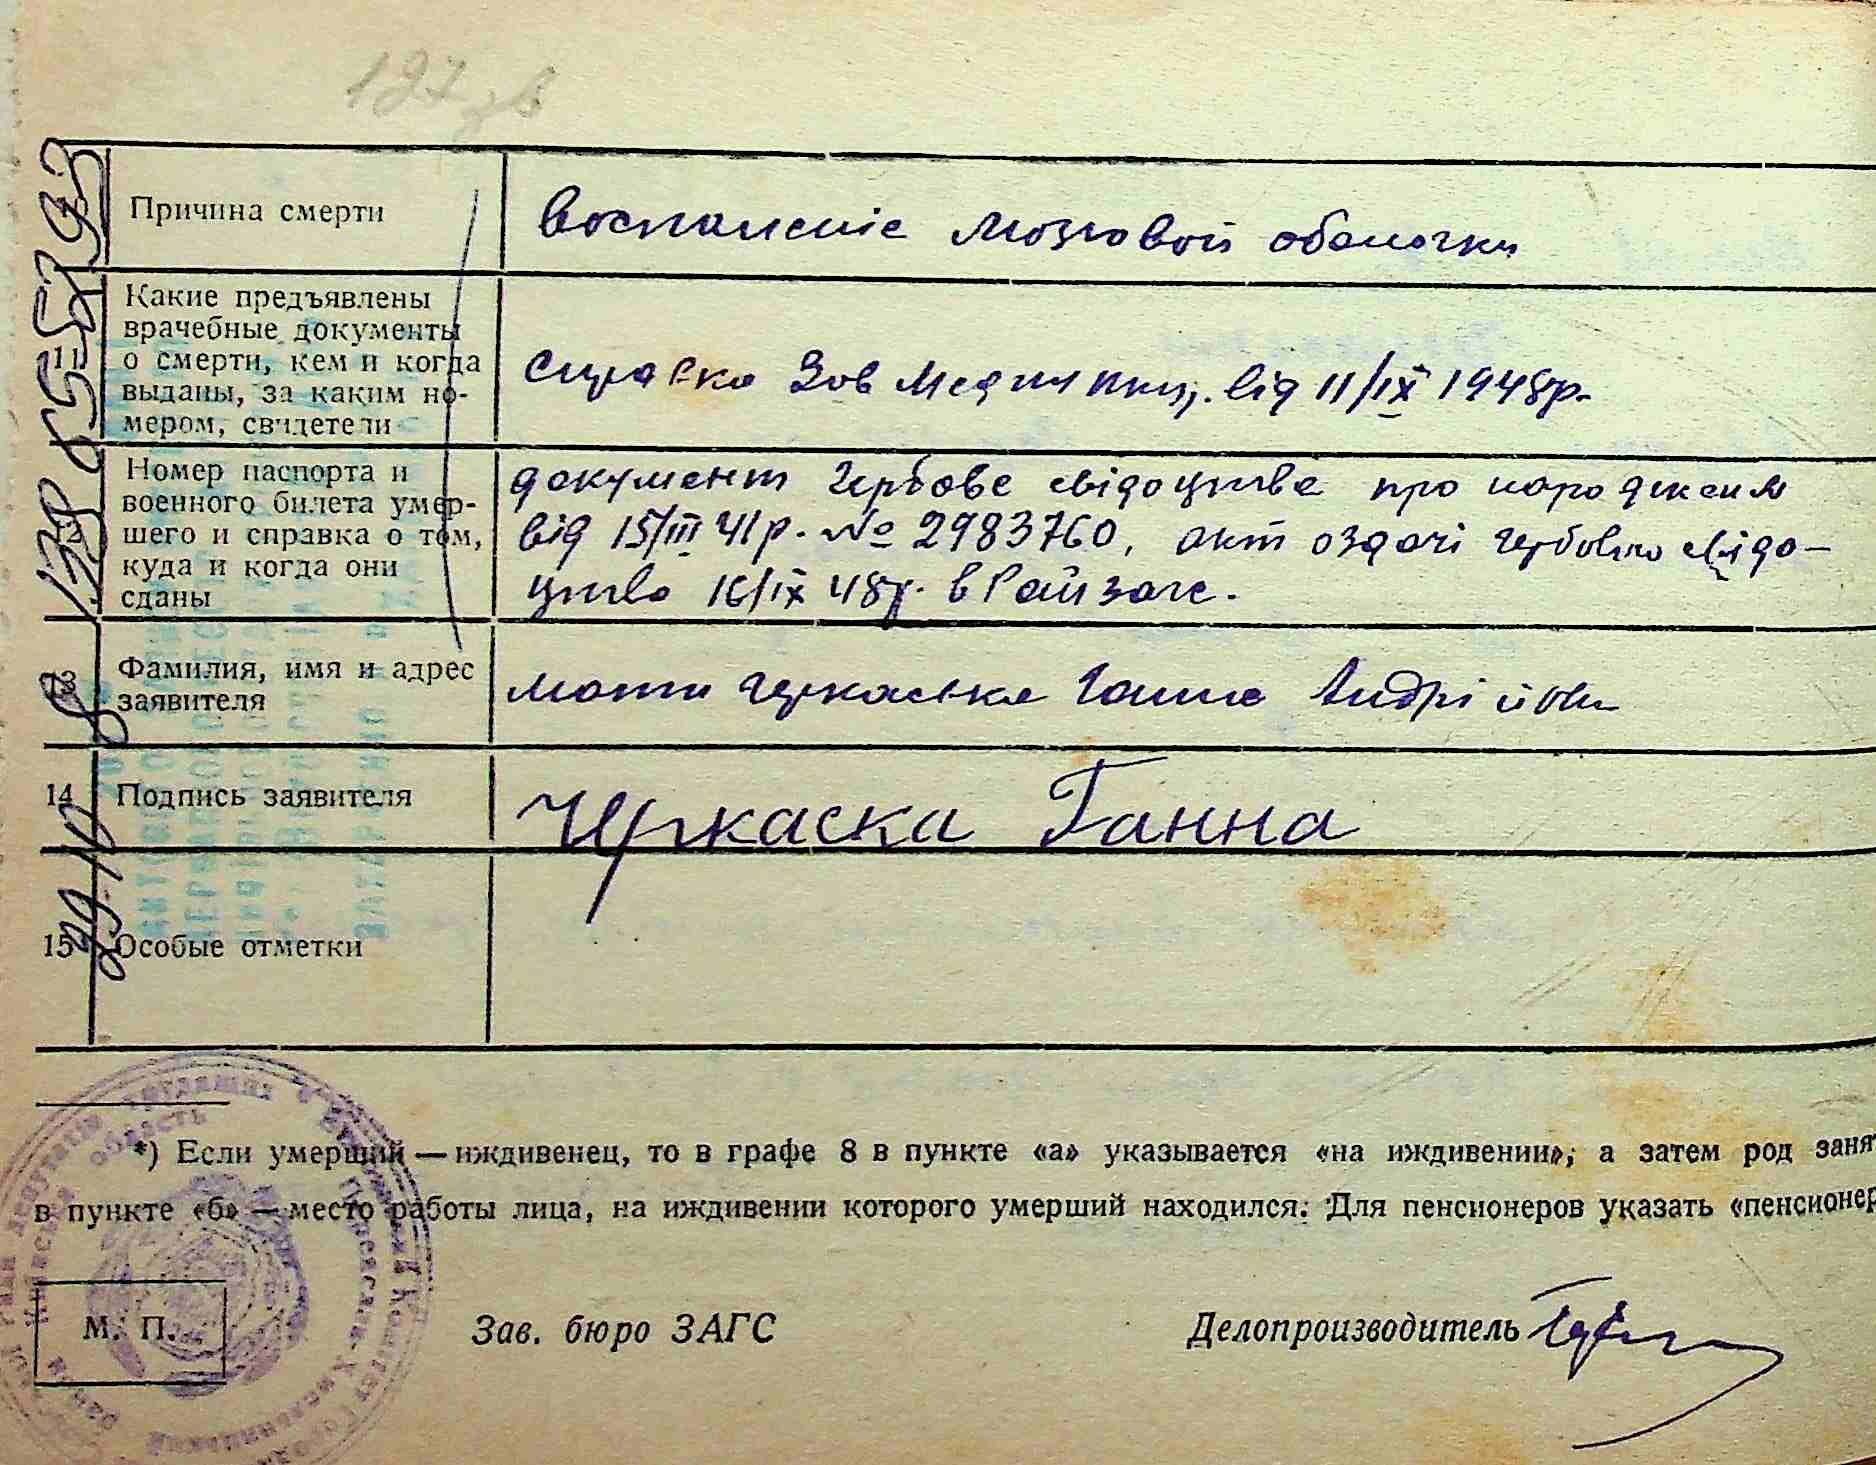 127 зв
Причина смерти
Воспаленіє мозговой оболочки
11
Какие предъявлены
врачебные документы
о смерти, кем и когда
выданы, за каким но-
мером, свидетели
Справка Зов від 11/IX 1948р.
12
Номер паспорта и
военного билета умер-
шего и справка о том,
куда и когда они
сданы
документ Гербове свідоцтво про народження
від 15/III 41р. № 2983760, акт оздачі гербового свідо-
цтва 16/IX 48р. в Райзагс.
13
Фамилия, имя и адрес
заявителя
мати Черкаська Ганна Андріївн
14
Подпись заявителя
Черкаска Ганна
15
Особые отметки
*) Если умерший — иждивенец, то в графе 8 в пункте «а» указывается «на иждивении», а затем род заня
в пункте «б» — место работы лица, на иждивении которого умерший находился. Для пенсионеров указать «пенсионер
М. П.
Зав. бюро ЗАГС
Делопроизводитель